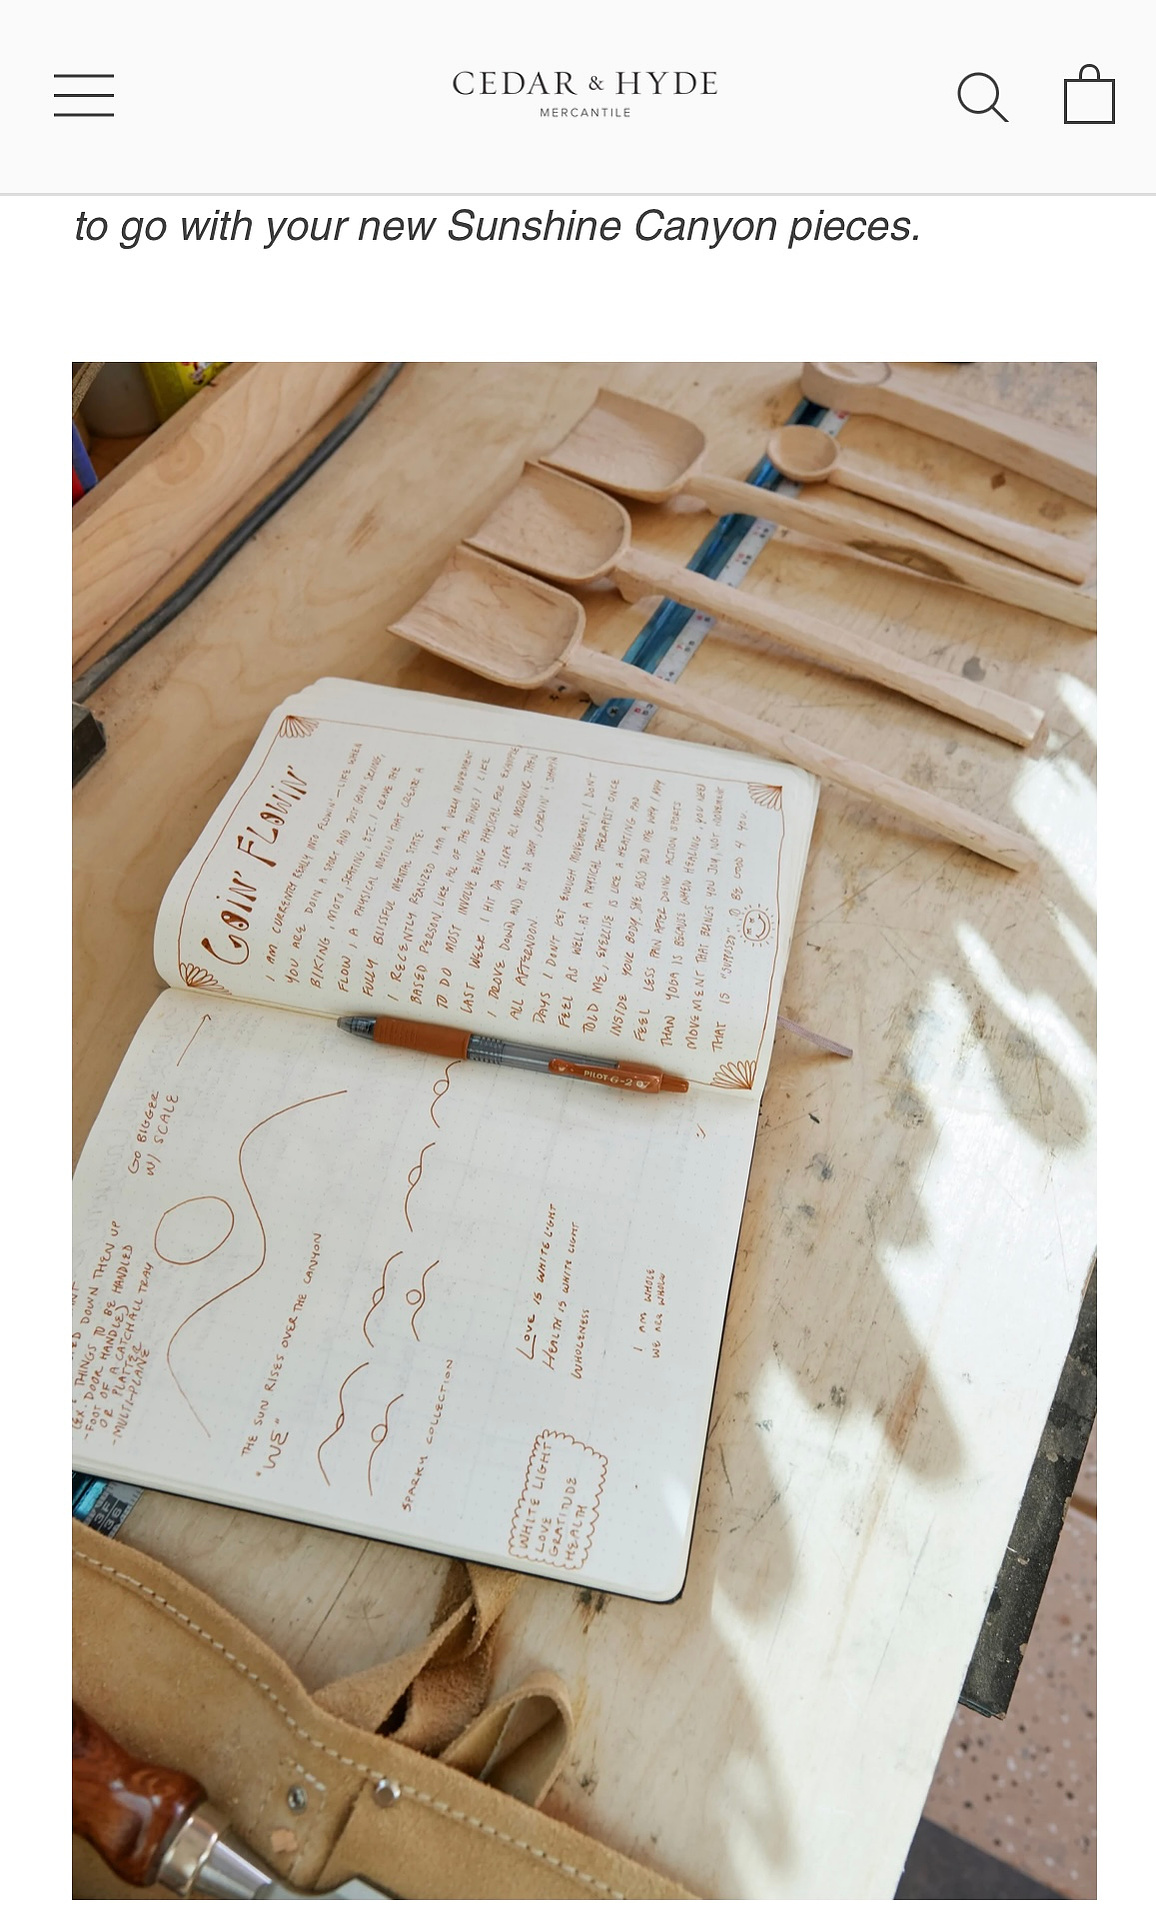 CEDAR & HYDE
MERCANTILE
to go with your new Sunshine Canyon pieces.
GOIN' FLOWIN'
I AM CURRENTLY REALLY INTO FLOWIN' — LIKE WHEN
YOU ARE DOIN A SPORT AND JUST GOIN. SKIING,
BIKING, MOTO, SKATING, ETC. I CRAVE THE
FLOW, A PHYSICAL MOTION THAT CREATES A
FULLY BLISSFUL MENTAL STATE.
I RECENTLY REALIZED I AM A VERY MOVEMENT
BASED PERSON. LIKE, ALL OF THE THINGS I LIKE
TO DO MOST INVOLVE BEING PHYSICAL. FOR EXAMPLE
LAST WEEK I HIT DA SLOPE ALL MORNING THEN
I DROVE DOWN AND HIT DA SHOP, CARVIN'
ALL AFTERNOON.
DAYS I DON'T GET ENOUGH MOVEMENT, I DON'T
FEEL AS WELL. AS A PHYSICAL THERAPIST ONCE
TOLD ME, EXERCISE IS LIKE A HEATING PAD
INSIDE YOUR BODY. SHE ALSO TOLD ME WHY I MAY
FEEL LESS PAIN AFTER DOING ACTION SPORTS
THAN YOGA IS BECAUSE WHEN HEALING, YOU NEED
MOVEMENT THAT BRINGS YOU JOY, NOT MOVEMENT
THAT IS "SUPPOSED" TO BE GOOD 4 YOU.
PILOT G-2 07
GO BIGGER
W/ SCALE
DOWN THEN UP
(EX. THINGS TO BE HANDLED
-DOOR HANDLE)
-FOOT OF A CATCHALL TRAY
OR PLATTER
-MULTI-PLANE
THE SUN RISES OVER THE CANYON
"WE"
SPARKY COLLECTION
:)
LOVE IS WHITE LIGHT
HEALTH IS WHITE LIGHT
WHOLENESS
I AM WHOLE
WE ARE WHOLE
WHITE LIGHT
LOVE
GRATITUDE
HEALTH